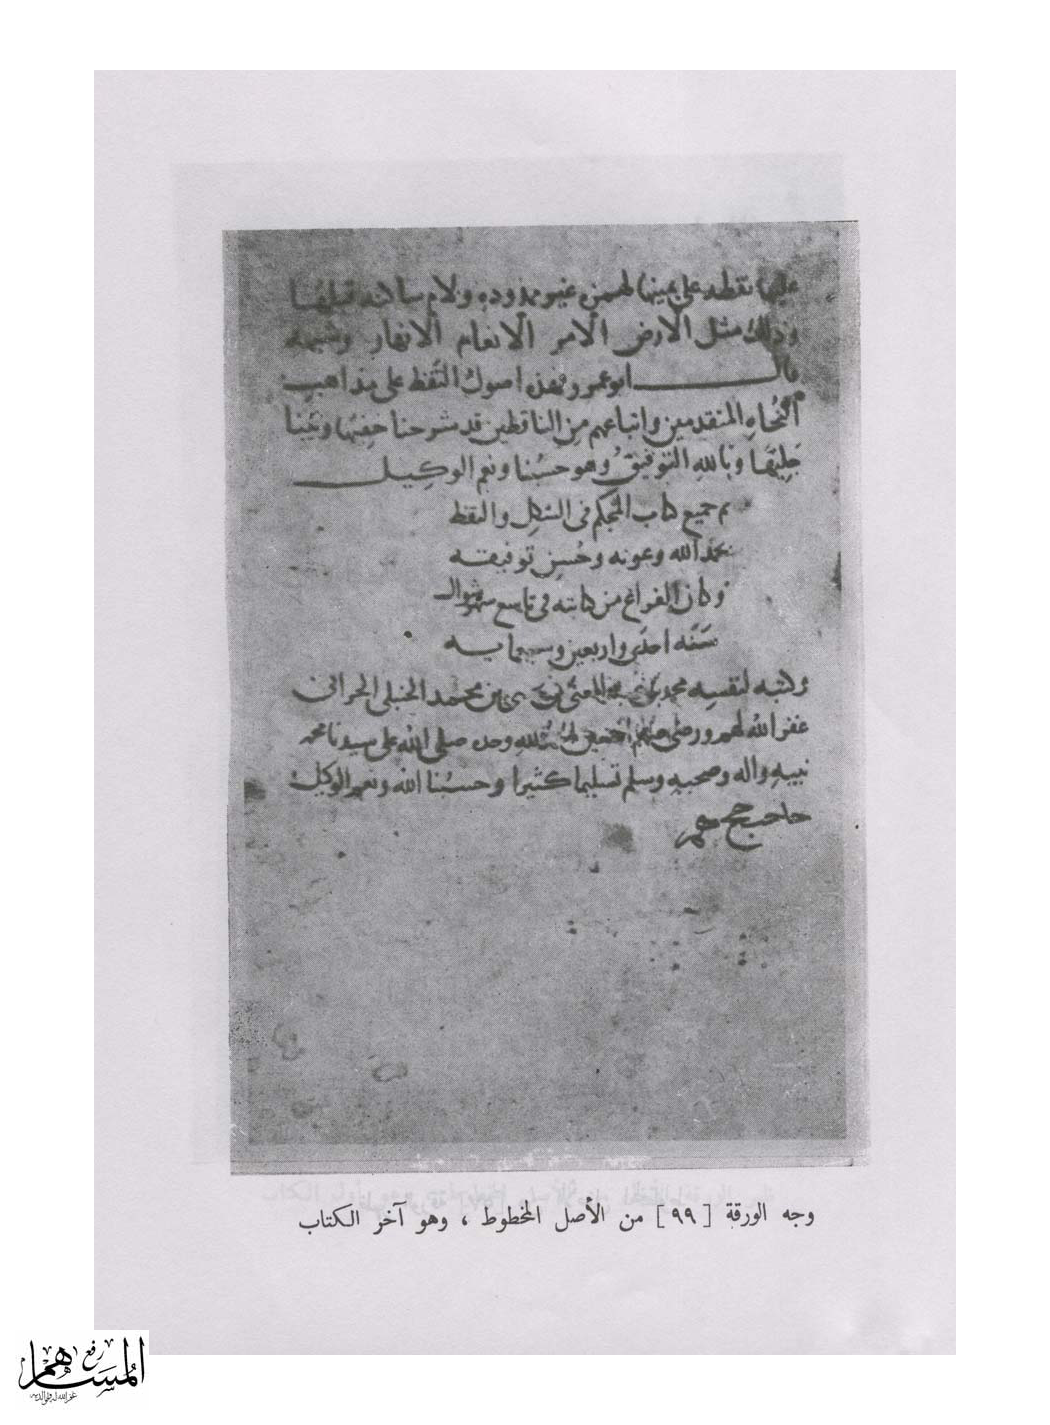 عليها نقطه على يمينها لهمزه غير ممدوده ولام ساكنه قبلها
وذلك مثل الارض الامر الانعام الانهار وشبهه
قال ابو عمرو فهذه اصول النقط على مذاهب
النُحاه المتقدمين واتباعهم مِن الناقطين قد شرحنا خفيّها وبيّنا
جَلِيَّها وبالله التوفيقُ وهو حسبُنا ونعم الوكيل
تم جميع كتاب المحكم في الشكل والنقط
بحمد الله وعونه وحُسنِ توفيقه
وكان الفراغ من كتابته في تاسع شهر شوال
سَنَه احدى واربعين وسبعمايه
وكتبه لنفسِه محمد بن محمد الحنبلي الحراني
غفر الله لهم ورضي عنهم اجمعين الحمد لله وحده صلى الله على سيدنا محمد
نبيه واله وصحبه وسلم تسليما كثيرا وحسبُنا الله ونعم الوكيل
وجه الورقة [ ٩٩ ] من الأصل المخطوط ، وهو آخر الكتاب
رفع
المساهم
غفر الله له ولوالديه